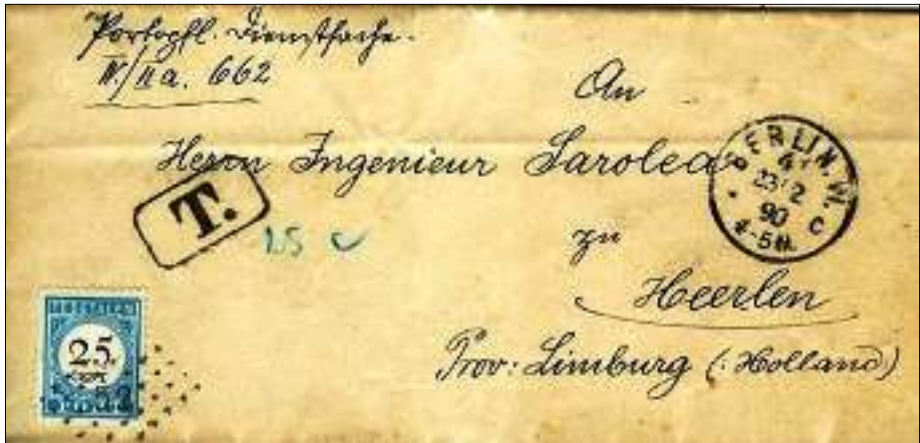 Portopfl. Dienstsache.
IV./IIa. 662
An
Herrn Ingenieur Sarolea
BERLIN. W.
41
23/2
90
4-5N.
C
T.
25 c
zu
Heerlen
TE BETALEN
25
CENT
Prov: Limburg (: Holland)